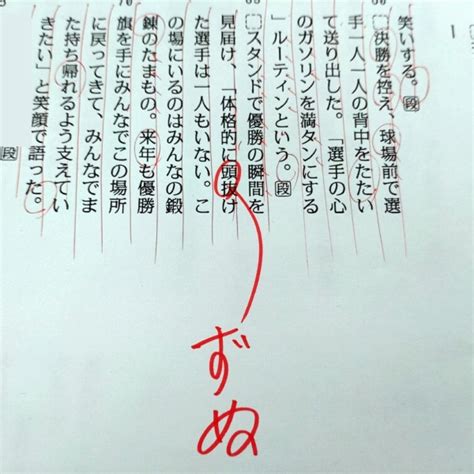 笑いする。段
□決勝を控え、球場前で選
手一人一人の背中をたたい
て送り出した。「選手の心
のガソリンを満タンにする
」ルーティンという。段
□スタンドで優勝の瞬間を
見届け、「体格的に頭抜け
た選手は一人もいない。こ
の場にいるのはみんなの鍛
錬のたまもの。来年も優勝
旗を手にみんなでこの場所
に戻ってきて、みんなでま
た持ち帰れるよう支えてい
きたい」と笑顔で語った。段
ずぬ
70